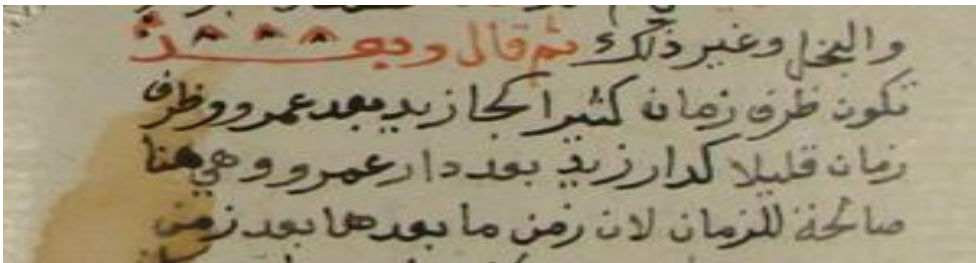 والبخل وغير ذلك ثم قال وبعد
تكون ظرف زمان كثيرا كجا زيد بعد عمرو وظرف
زمان قليلا كدار زيد بعد دار عمرو وهي هنا
صالحة للزمان لان زمن ما بعدها بعد زمن